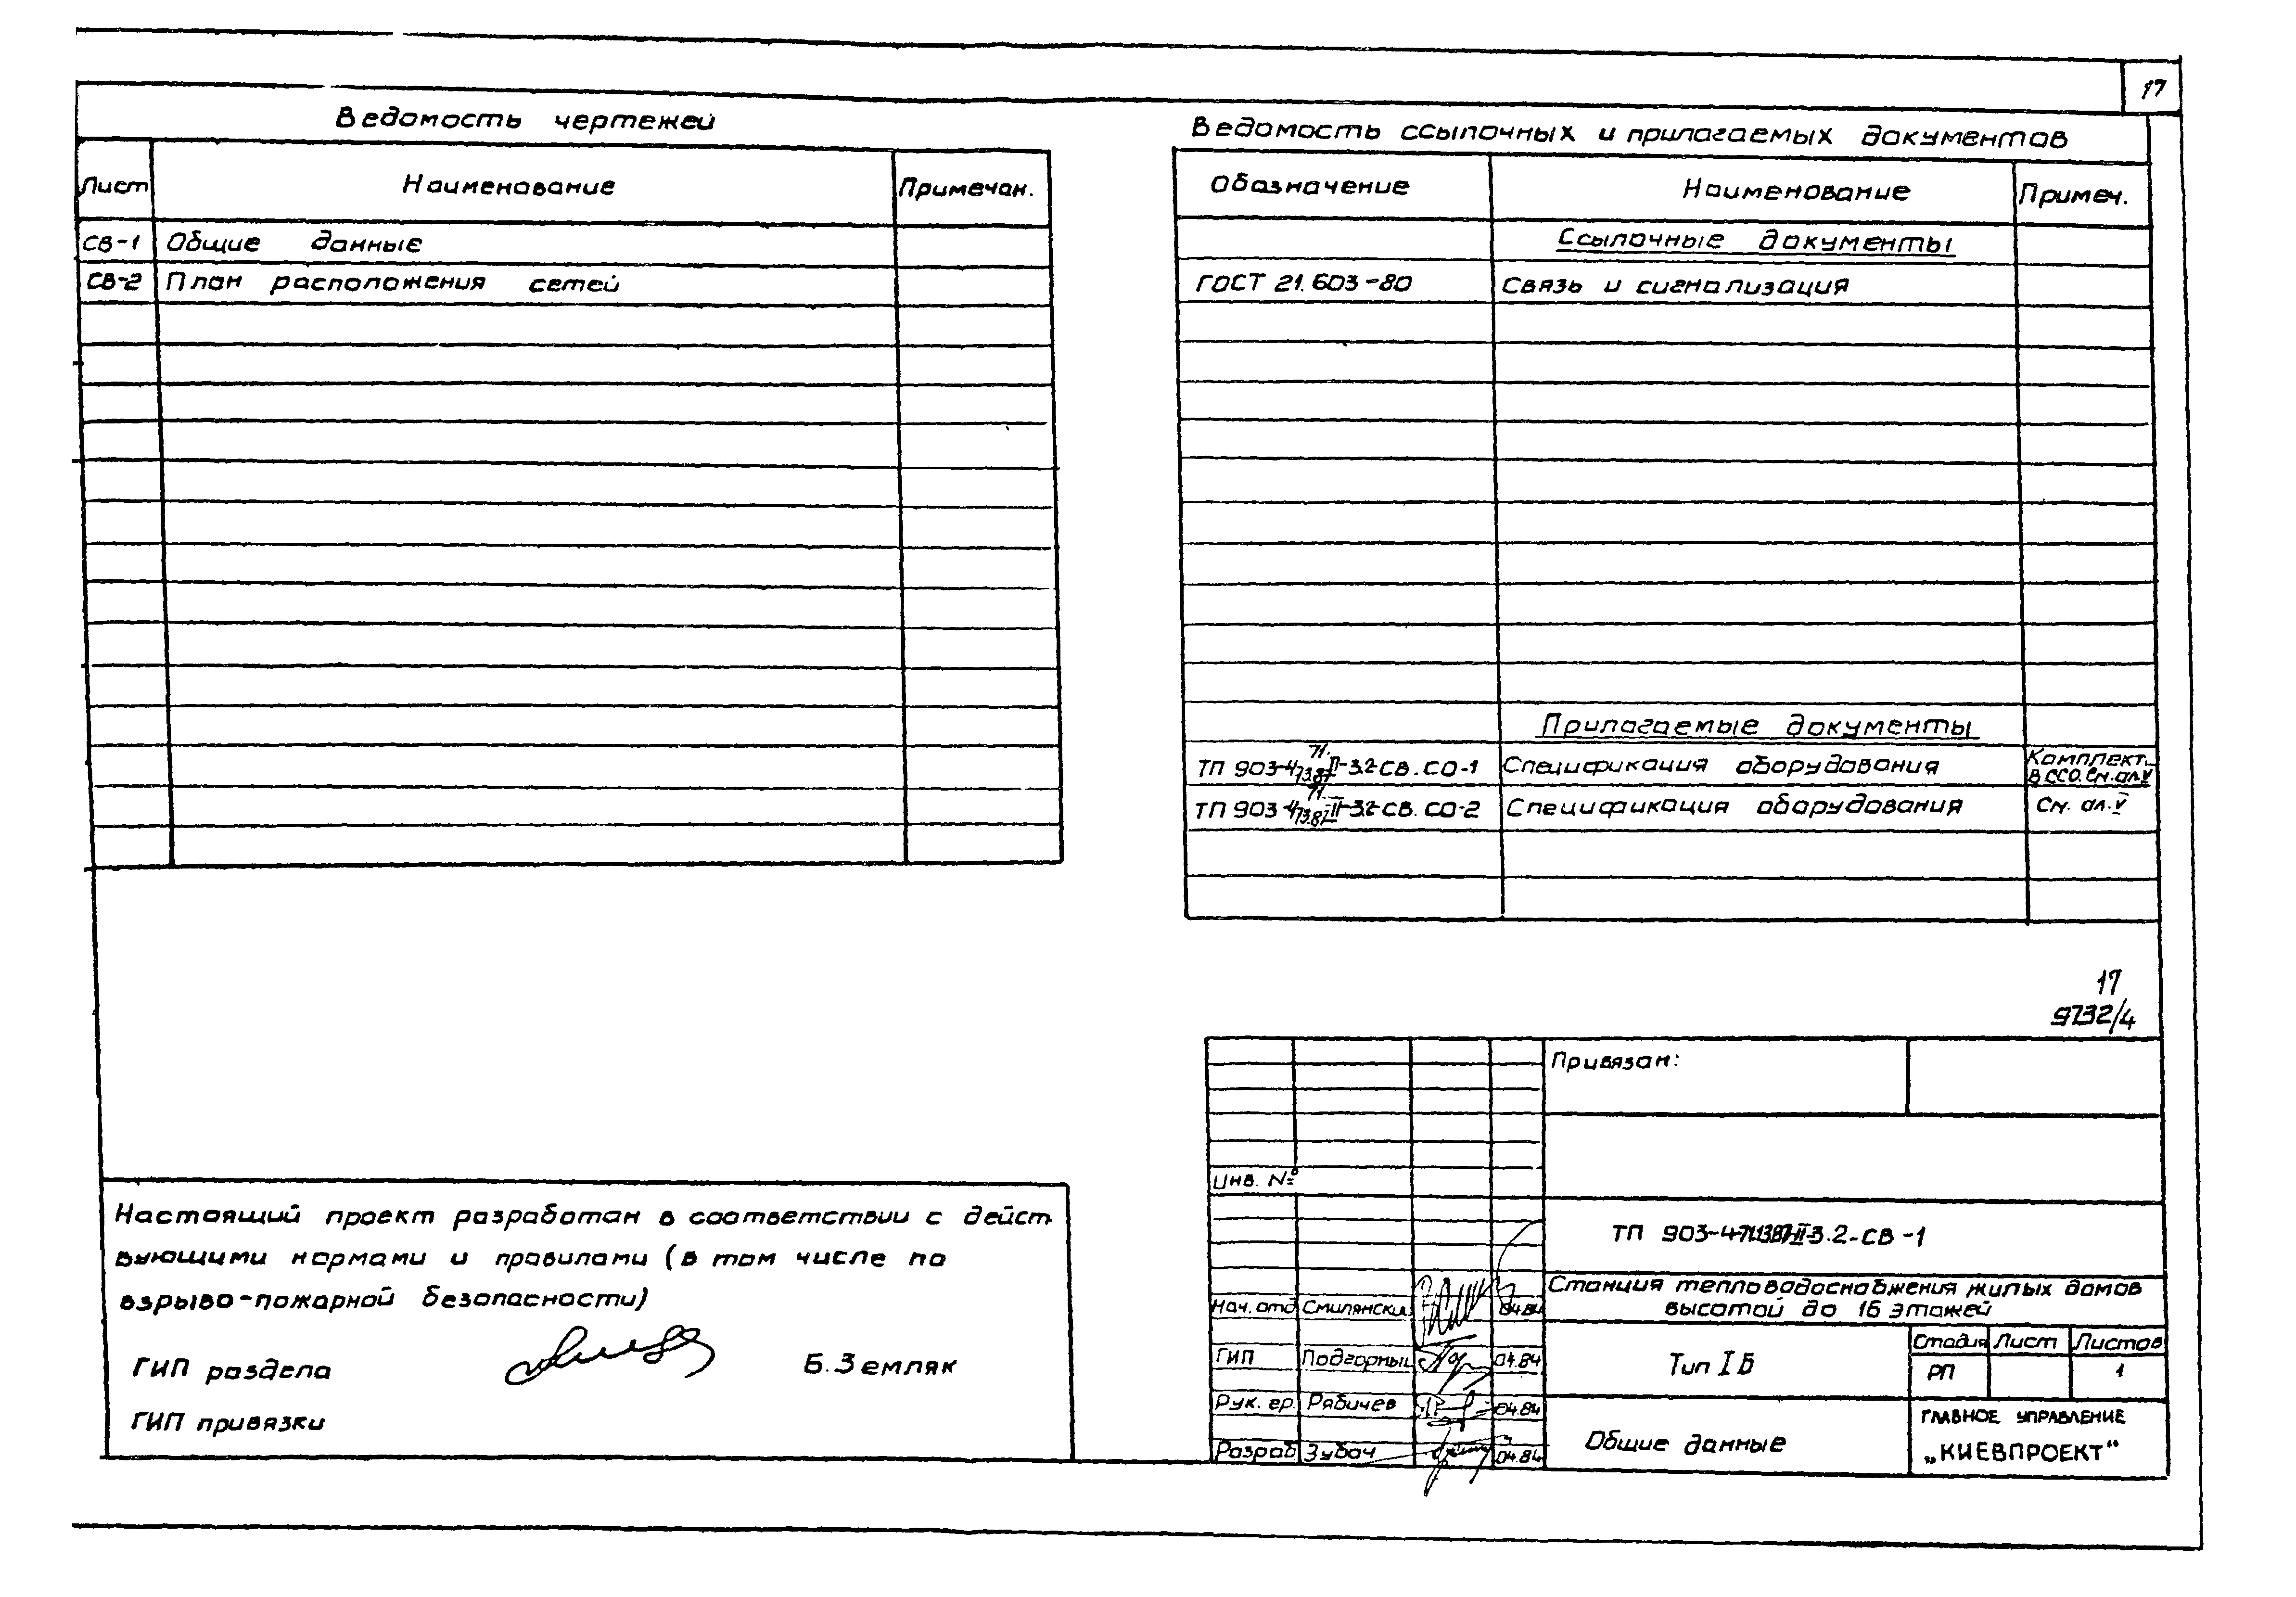 17
Ведомость чертежей
Лист Наименование Примечан.
СВ-1 Общие данные
СВ-2 План расположения сетей
Ведомость ссылочных и прилагаемых документов
Обозначение Наименование Примеч.
Ссылочные документы
ГОСТ 21.603-80 Связь и сигнализация
Прилагаемые документы
ТП 903-4-71.13.87-II-3.2-СВ.СО-1 Спецификация оборудования Комплект.
в ССО. См. ал.V
ТП 903-4-71.13.87-II-3.2-СВ.СО-2 Спецификация оборудования См. ал.V
17
9732/4
Настоящий проект разработан в соответствии с дейст
вующими нормами и правилами (в том числе по
взрыво-пожарной безопасности)
ГИП раздела Б. Земляк
ГИП привязки
Привязан:
Инв. №
ТП 903-4-71.13.87-II-3.2-СВ-1
Станция тепловодоснабжения жилых домов
высотой до 16 этажей
Нач. отд Смилянский 04.84
ГИП Подгорный 04.84
Рук. гр. Рябичев 04.84
Разраб Зубач 04.84
Тип I Б
Стадия Лист Листов
РП 1
Общие данные
ГЛАВНОЕ УПРАВЛЕНИЕ
„КИЕВПРОЕКТ“